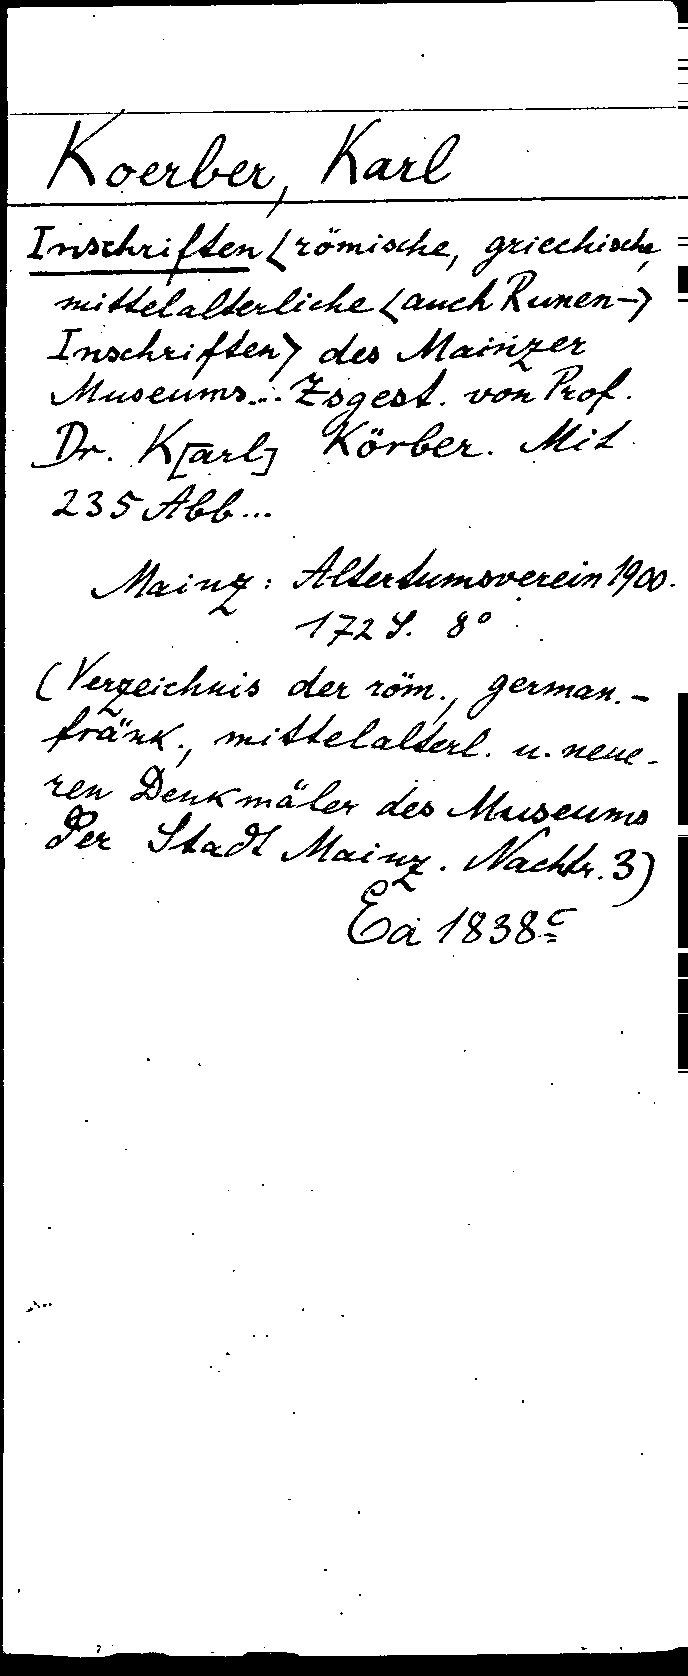 Koerber, Karl
Inschriften <römische, griechische,
mittelalterliche <auch Runen->
Inschriften> des Mainzer
Museums... Zsgest. von Prof.
Dr. K[arl] Körber. Mit
235 Abb...
Mainz: Altertumsverein 1900.
172 S. 8°
(Verzeichnis der röm., german.-
fränk., mittelalterl. u. neue-
ren Denkmäler des Museums
der Stadt Mainz. Nachtr. 3)
Ea 1838c